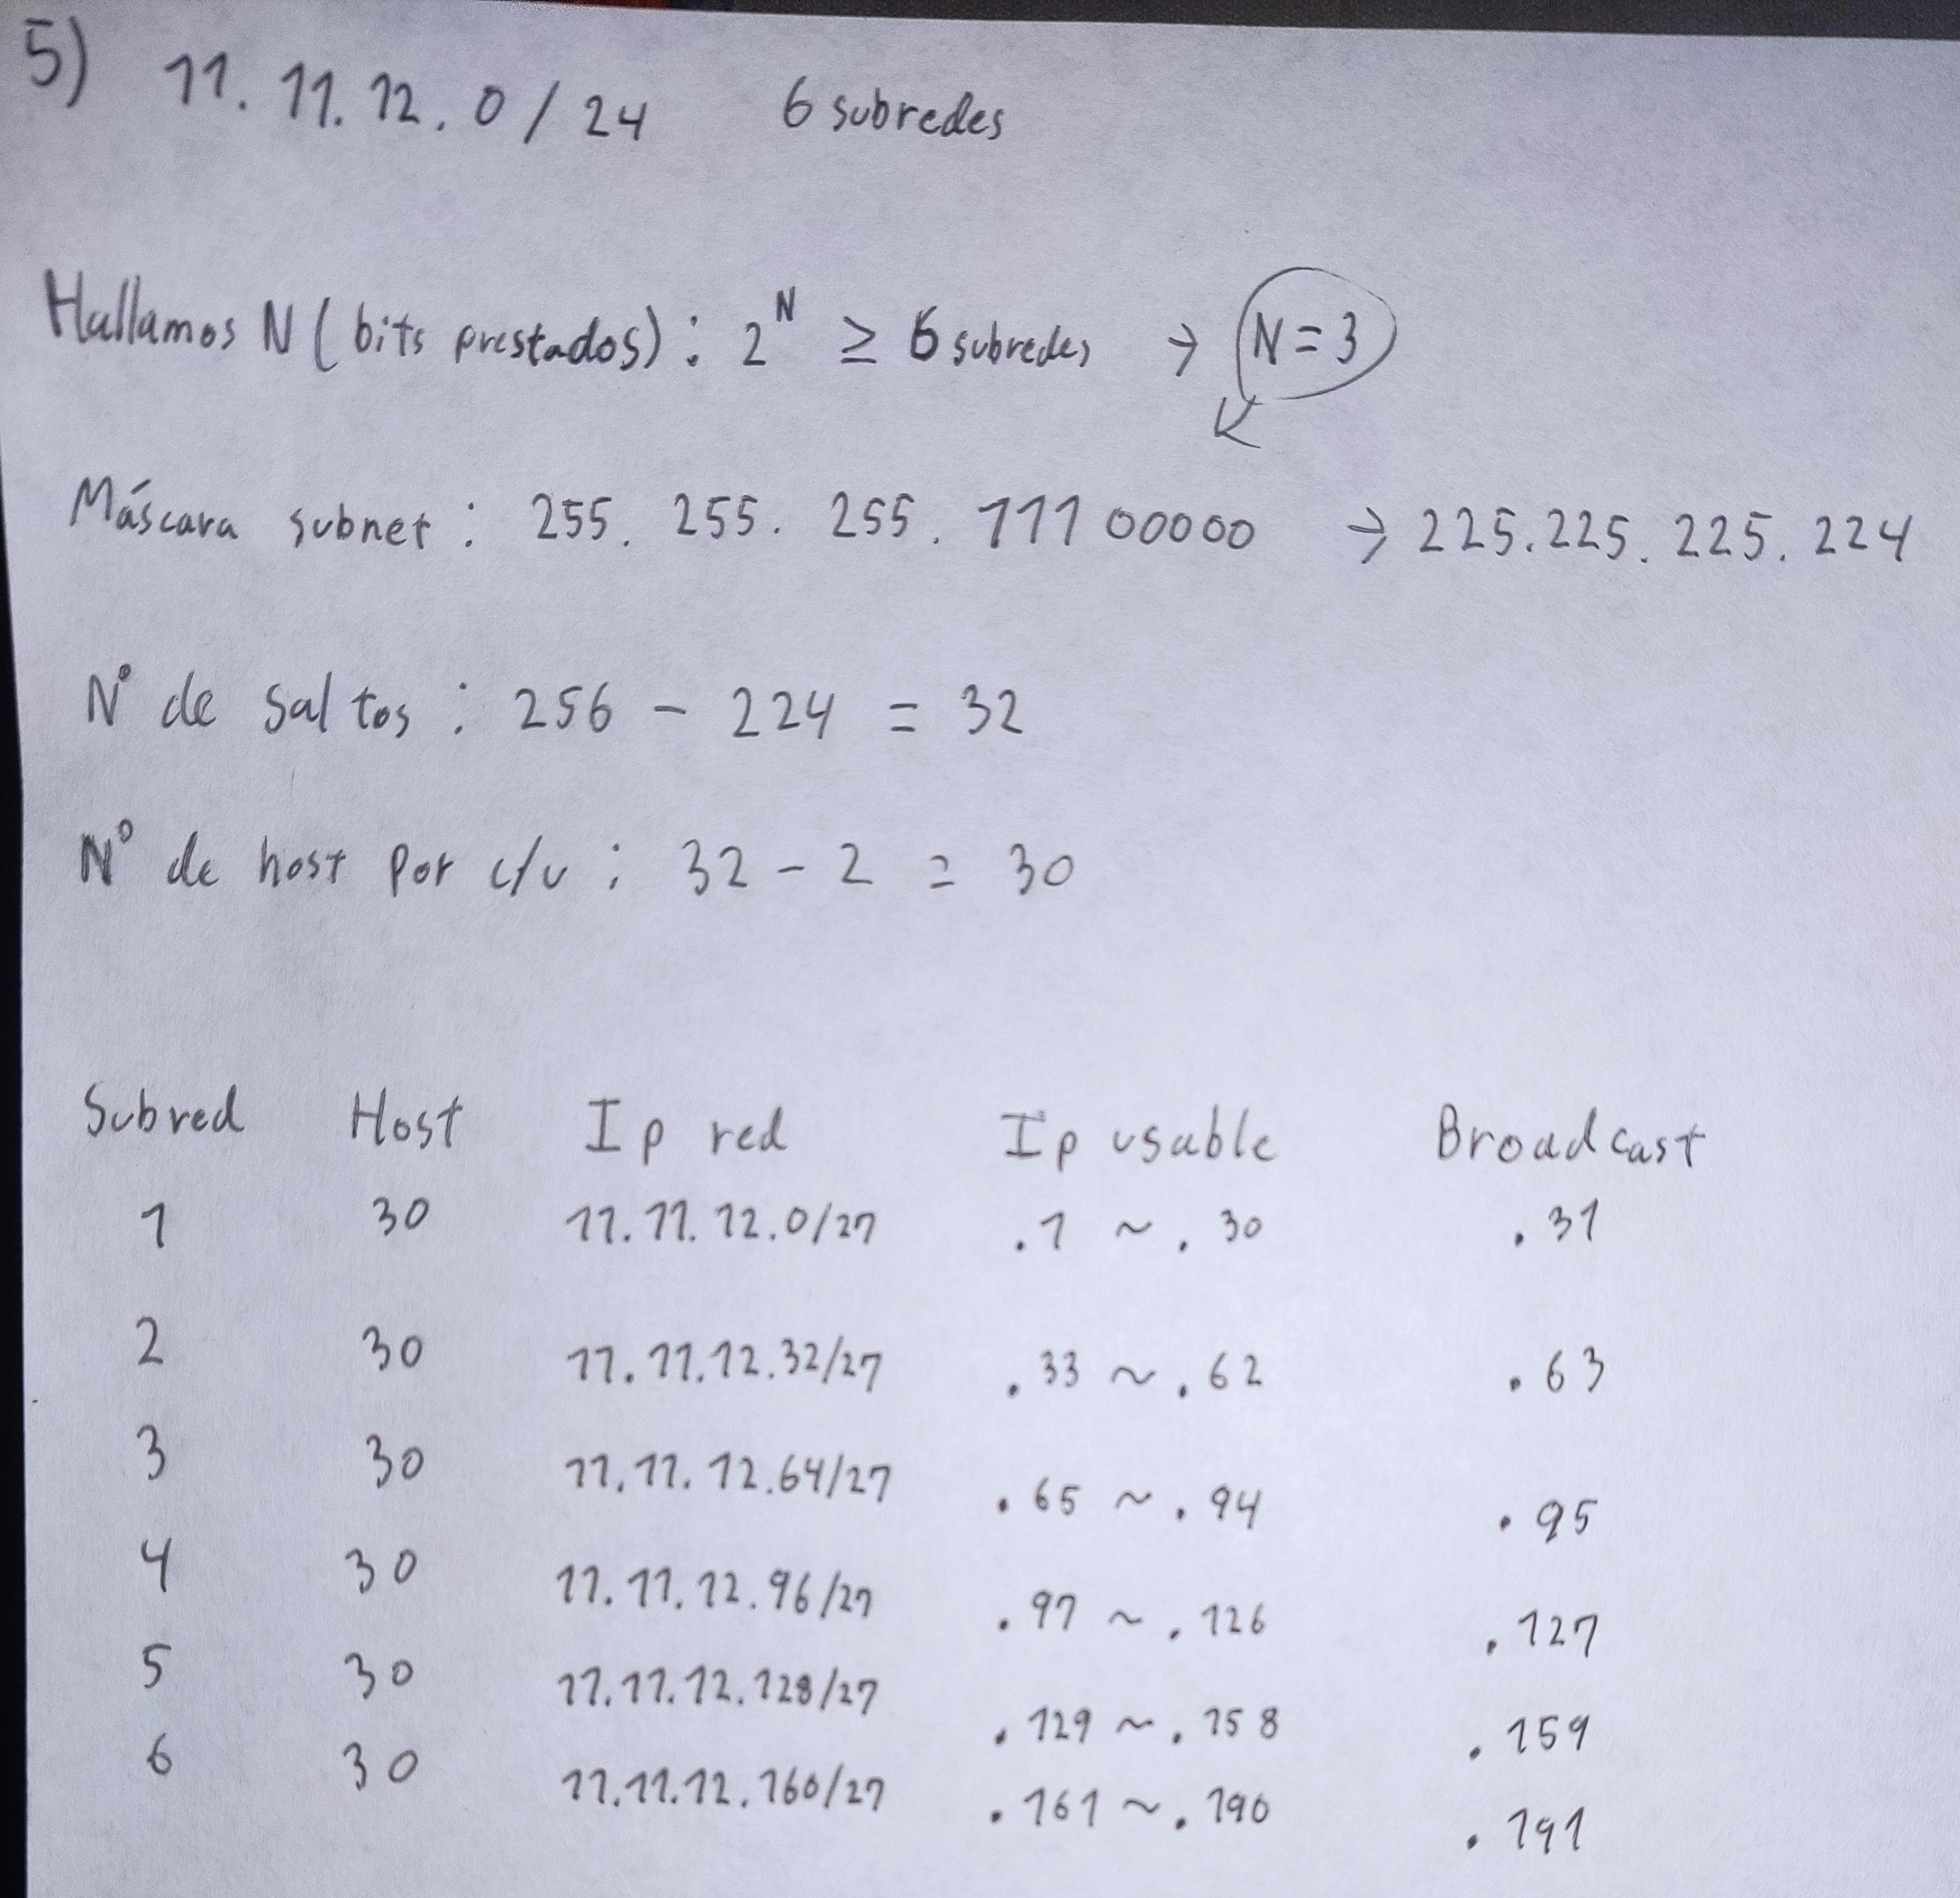 5) 11.11.12.0/24 6 subredes
Hallamos N (bits prestados): 2^N ≥ 6 subredes → N=3
Máscara subnet: 255.255.255.11100000 → 225.225.225.224
N° de saltos: 256 - 224 = 32
N° de host por c/u: 32 - 2 = 30
Subred Host Ip red Ip usable Broadcast
1 30 11.11.12.0/27 .1 ~ .30 .31
2 30 11.11.12.32/27 .33 ~ .62 .63
3 30 11.11.12.64/27 .65 ~ .94 .95
4 30 11.11.12.96/27 .97 ~ .126 .127
5 30 11.11.12.128/27 .129 ~ .158 .159
6 30 11.11.12.160/27 .161 ~ .190 .191